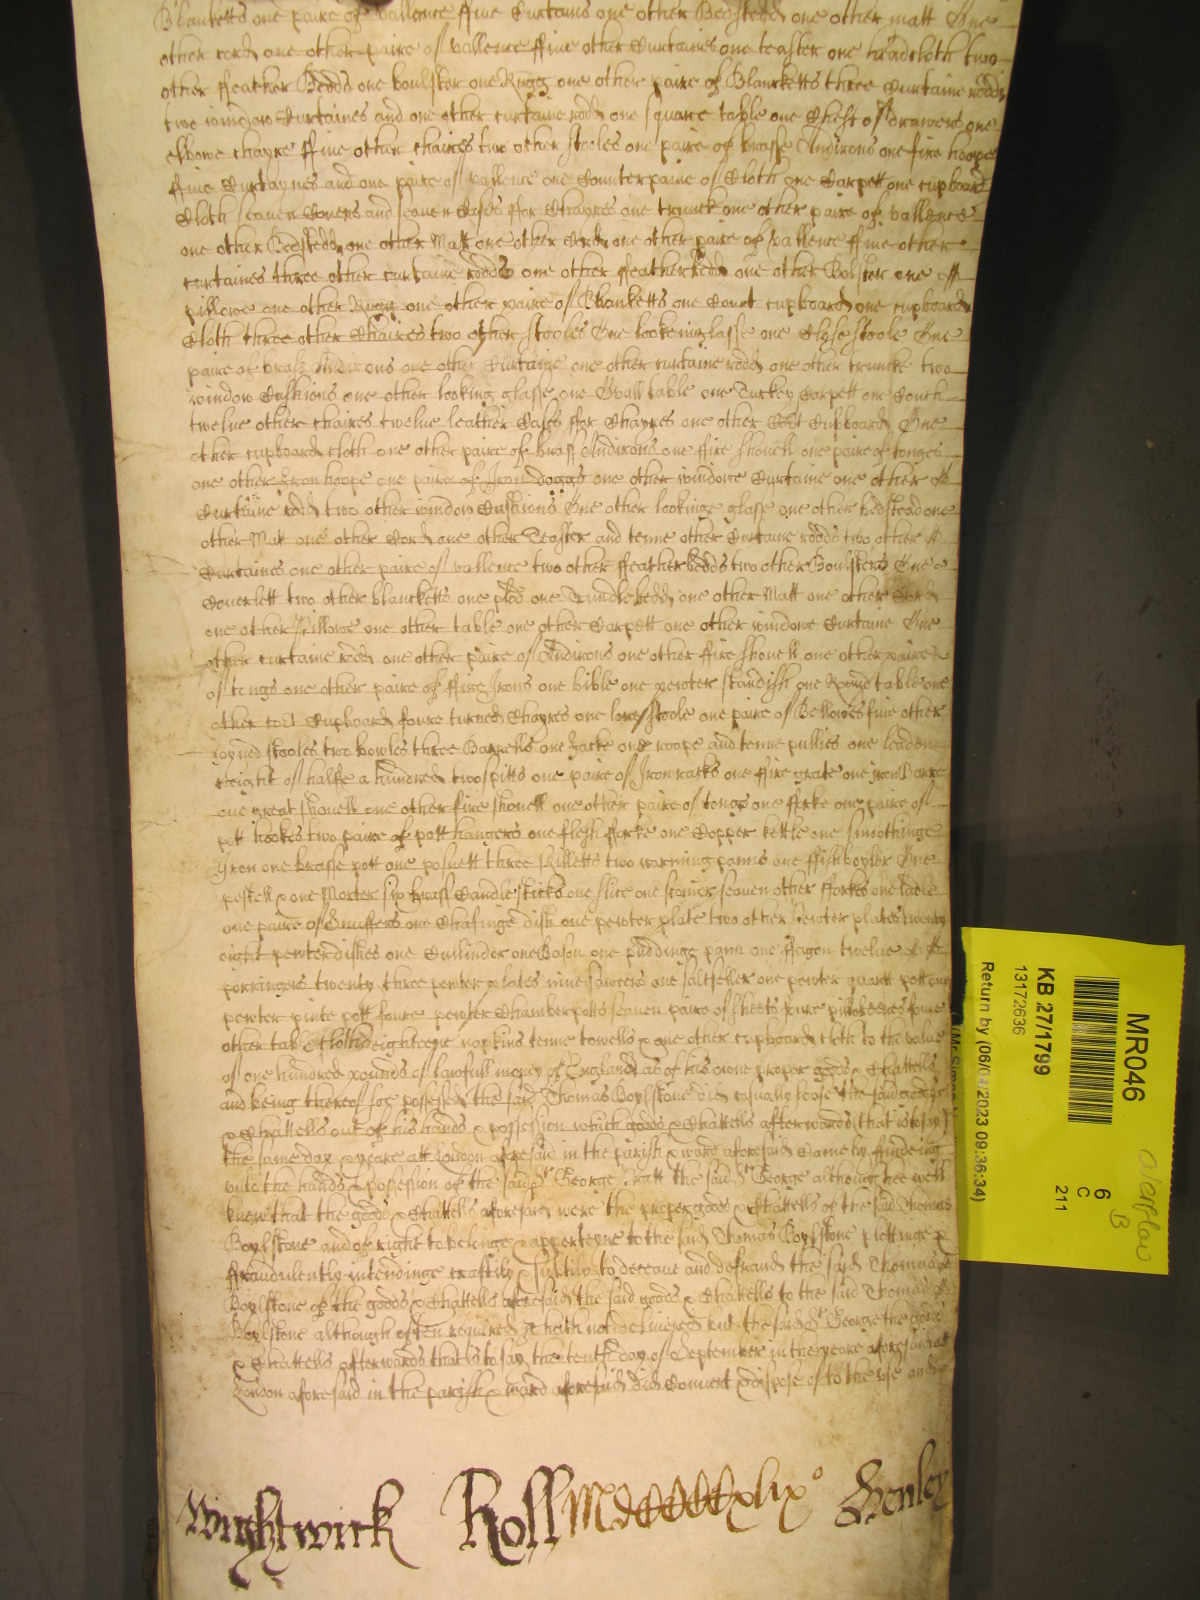 Blanketts one paire of vallence ffive Curtains one other Bedstedd one other matt One
other cord one other paire of vallence ffive other Curtaines one teaster one headcloth two
other ffeather Bedds one boulster one Rugg one other paire of Blancketts three Curtaine rodds
two window Curtaines and one other curtaine rodd one square table one Chest of drawers one
elbowe chayre ffive other chaires two other stooles one paire of brasse Andirons one fire hoope
ffive Curtaynes and one paire of vallence one Counterpaine of Cloth one Carpett one cupboard
Cloth seaven Covers and seaven Cases ffor Chayres one trunck one other paire of vallence
one other Bedstedd one other Matt one other Cord one other paire of vallence ffive other
curtaines three other curtaine rodds one other ffeatherbedd one other Bolster one
pillowe one other Rugg one other paire of Blanketts one Court cupboard one cupboard
Cloth three other Chaires two other stooles One lookeinglasse one Close stoole One
paire of brasse Andirons one other Curtaine one other curtaine rodd one other truncke two
window Cushions one other looking glasse one Ovall table one Turkey Carpett one Couch
twelve other chaires twelve leather Cases ffor Chayres one other Cort Cupboard One
other cupboard cloth one other paire of brasse Andirons one ffire shovell one paire of tonges
one other Iron hoope one paire of Iron doggs one other windowe Curtaine one other
Curtaine rodd two other window Cushions One other lookinge glasse one other bedstead one
other Matt one other Cord one other Teaster and tenne other Curtaine rodds two other
Curtaines one other paire of vallence two other ffeather bedds two other Boulsters One
Coverlett two other blancketts one one Trundlebedd one other Matt one other Cord
one other Pillowe one other table one other Carpett one other windowe Curtaine One
other curtaine rodd one other paire of Andirons one other ffire shovell one other paire
of tongs one other paire of ffire Irons one bible one pewter standish one Round table one
other cort Cupboard foure turned Chayres one lowe stoole one paire of Bellowes five other
joyned stooles two bowles three Barrells one Jacke one roope and tenne pullies one leaden
weight of halfe a hundred two spitts one paire of Iron racks one ffire grate one iron Barre
one great shovell one other fire shovell one other paire of tongs one fforke one paire of
pott hookes two paire of pott hangers one flesh fforke one Copper kettle one smoothinge
Iron one brasse pott one posnett three skilletts two warming panns one ffishboyler One
pestell & one Morter six brasse Candlesticks one slice one scomer seaven other fforkes one ladle
one paire of Snuffers one Chafinge dish one pewter plate two other Pewter plates twenty
eight pewter dishes one Cullinder one Bason one puddinge pann one fflagon twelve
porringers twenty three pewter plates nine sawcers one saltseller one pewter quart pott one
pewter pinte pott foure pewter Chamberpotts seaven paire of sheets foure pillobeeres foure
other table Cloths eighteene napkins tenne towells & one other cupboard cloth to the value
of one hundred pounds of lawfull money of England as of his owne proper goods & Chattells
and being thereof soe possessed the said Thomas Boylstone did casually loose the said goods
& Chattells out of his hands & possession which goods & Chattells afterwards that is to say
the same day & yeare att London aforesaid in the parish & ward aforesaid Came by ffindeing
unto the hands & possession of the said Sr George Pratt the said Sr George although hee well
knew that the goods & Chattells aforesaid were the proper goods & Chattells of the said Thomas
Boylstone and of right to belonge & apperteyne to the said Thomas Boylstone plottinge &
ffraudulently intendinge craftily & subtilly to deceave and defraud the said Thomas
Boylstone of the goods & Chattells aforesaid the said goods & Chattells to the said Thomas
Boylstone although often required hath not delivered but the said Sr George the goods
& Chattells afterwards that is to say the tenth day of September in the yeare aforesaid att
London aforesaid in the parish & ward aforesaid did Convert & dispose of to the use and
Wightwick Roll Mdccccccxlixo Henley
MR046
6
B
C
211
KB 27/1799
13172636
Return by (06/04/2023 09:36:34)